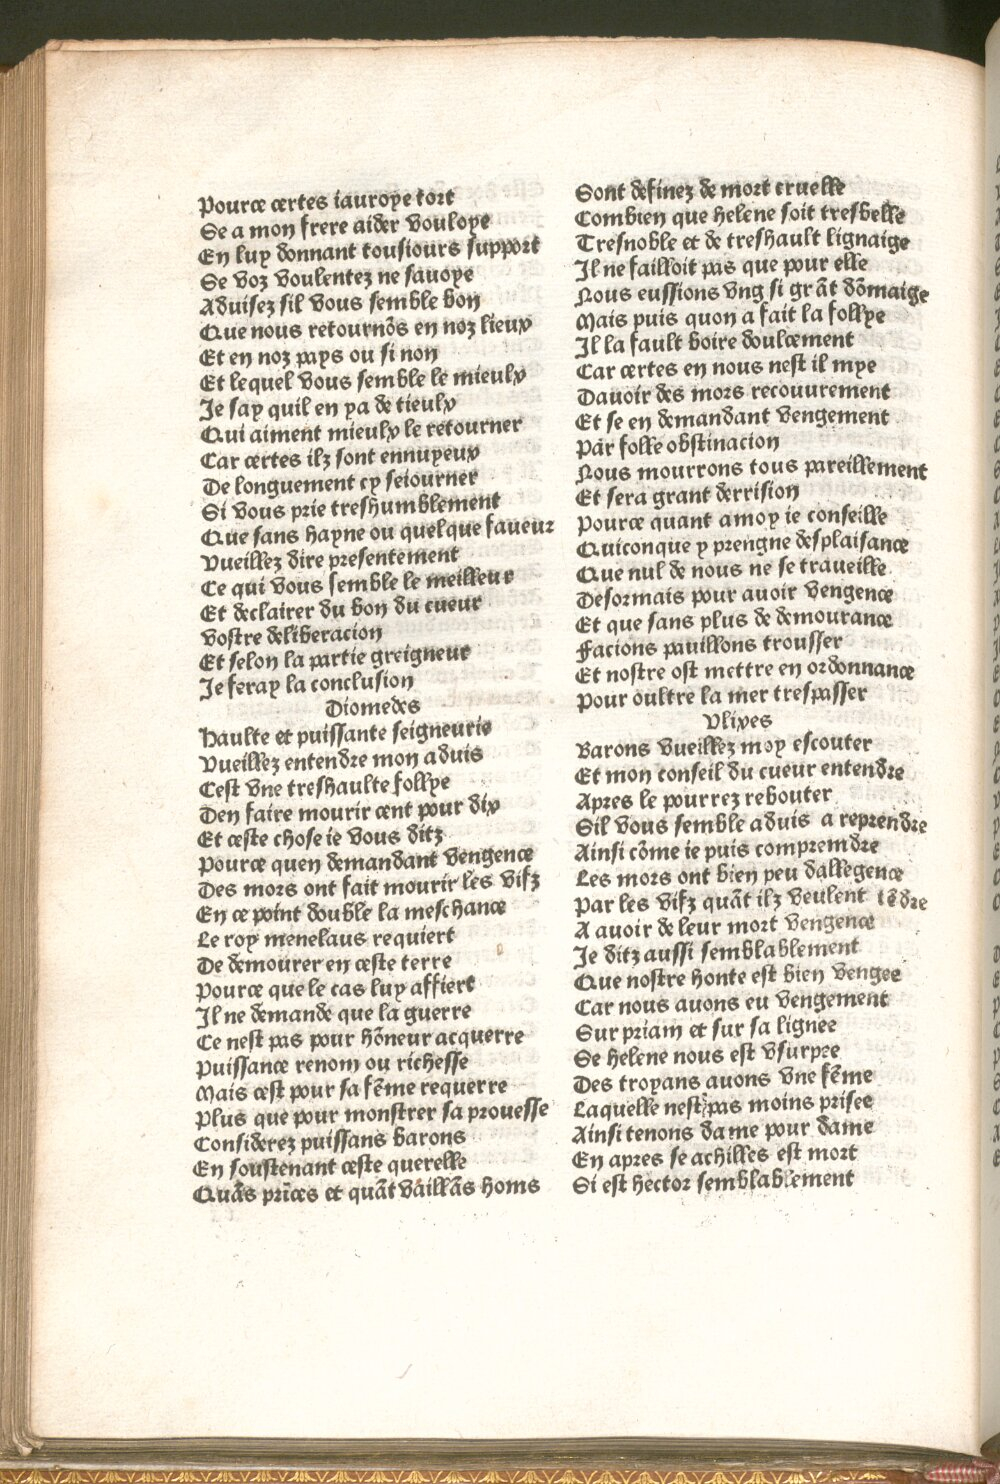 Pource certes iauroye tort
Se a mon frere aider vouloye
En luy donnant tousiours support
Se voz voulentez ne sauoye
Aduisez sil vous semble bon
Que nous retournõs en noz lieux
Et en noz pays ou si non
Et lequel vous semble le mieulx
Je say quil en ya de tieulx
Qui aiment mieulx le retourner
Car certes ilz sont ennuyeux
De longuement cy seiourner
Si vous prie treshumblement
Que sans hayne ou quelque faueur
Vueillez dire presentement
Ce qui vous semble le meilleur
Et declairer du bon du cueur
Vostre deliberacion
Et selon la partie greigneur
Je feray la conclusion
Diomedes
Haulte et puissante seigneurie
Vueillez entendre mon aduis
Cest vne treshaulte follye
Den faire mourir cent pour dix
Et ceste chose ie vous ditz
Pource quen demandant vengence
Des mors ont fait mourir les vifz
En ce point double la meschance
Le roy menelaus requiert
De demourer en ceste terre
Pource que le cas luy affiert
Il ne demande que la guerre
Ce nest pas pour hõneur acquerre
Puissance renom ou richesse
Mais cest pour sa fẽme requerre
Plus que pour monstrer sa prouesse
Considerez puissans barons
En soustenant ceste querelle
Quãs prĩces et quãt vaillãs homs
Sont definez de mort cruelle
Combien que helene soit tresbelle
Tresnoble et de treshault lignaige
Il ne failloit pas que pour elle
Nous eussions vng si grãt dõmaige
Mais puis quon a fait la follye
Il la fault boire doulcement
Car certes en nous nest il mye
Dauoir des mors recouurement
Et se en demandant vengement
Par folle obstinacion
Nous mourrons tous pareillement
Et sera grant derrision
Pource quant amoy ie conseille
Quiconque y prengne desplaisance
Que nul de nous ne se traueille
Desormais pour auoir vengence
Et que sans plus de demourance
Facions pauillons trousser
Et nostre ost mettre en ordonnance
Pour oultre la mer trespasser
Vlixes
Barons vueillez moy escouter
Et mon conseil du cueur entendre
Apres le pourrez rebouter
Sil vous semble aduis a reprendre
Ainsi cõme ie puis comprendre
Les mors ont bien peu dallegence
Par les vifz quãt ilz veulent tẽdre
A auoir de leur mort vengence
Je ditz aussi semblablement
Que nostre honte est bien vengee
Car nous auons eu vengement
Sur priam et sur sa lignee
Se helene nous est vsurpee
Des troyans auons vne fẽme
Laquelle nest pas moins prisee
Ainsi tenons dame pour dame
En apres se achilles est mort
Si est hector semblablement